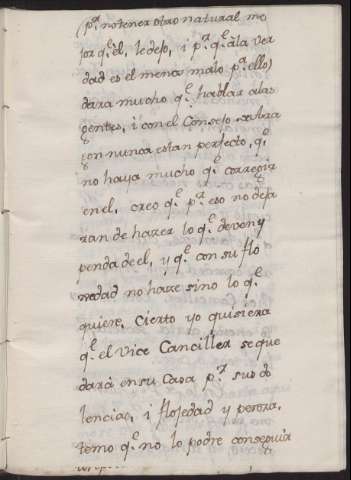 (pª. no tener otro natural me
jor q.e èl, le dejo, i pª. q.e à la ver
dad es el menos malo pª. ello)
dara mucho q.e hablar a las
gentes, i con el Consejo
nunca estan perfecto, q.e
no haya mucho q.e corregir
en el, creo q.e pª. eso no deja
ran de hazer lo q.e deven y
penda de el, y q.e con su flo
xedad no haze sino lo q.e
quiere, Cierto yo quisiera
q.e el Vice Canciller se que
dara en su Casa pª. sus do
lencias, i flojedad y pereza,
temo q.e no lo podre conseguir